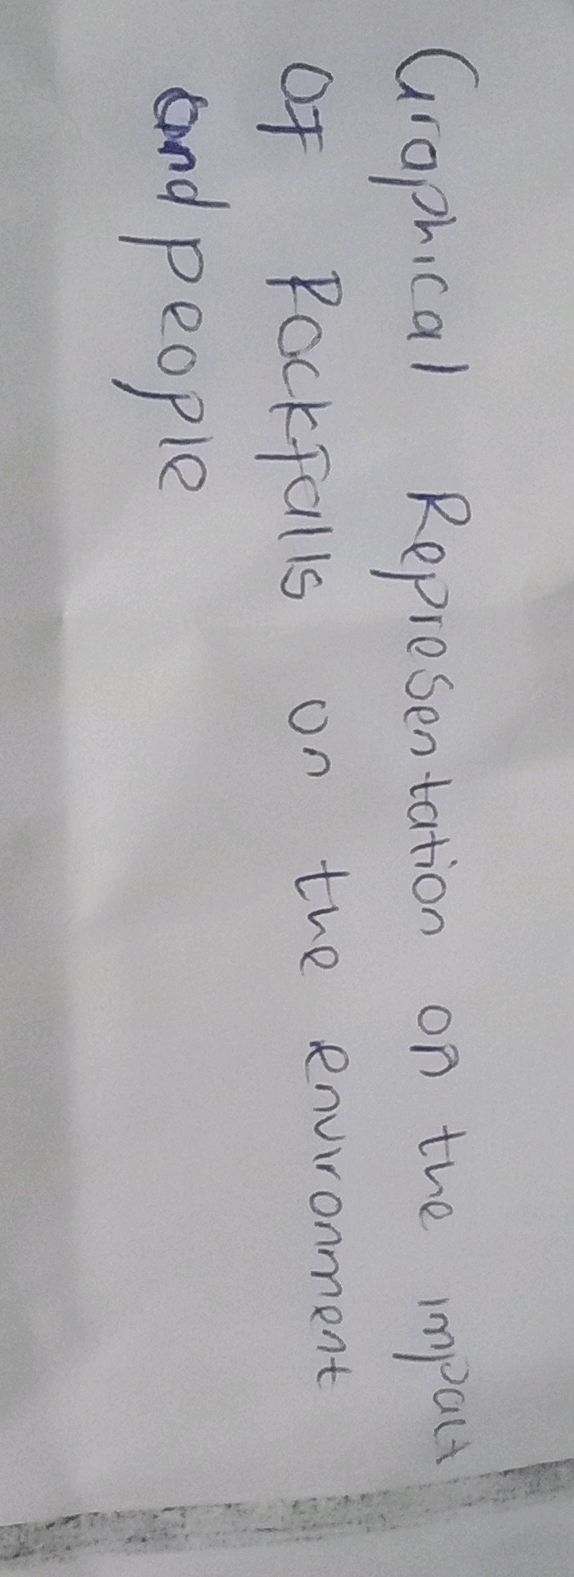 Graphical Representation on the impact
of Rockfalls on the environment
and people